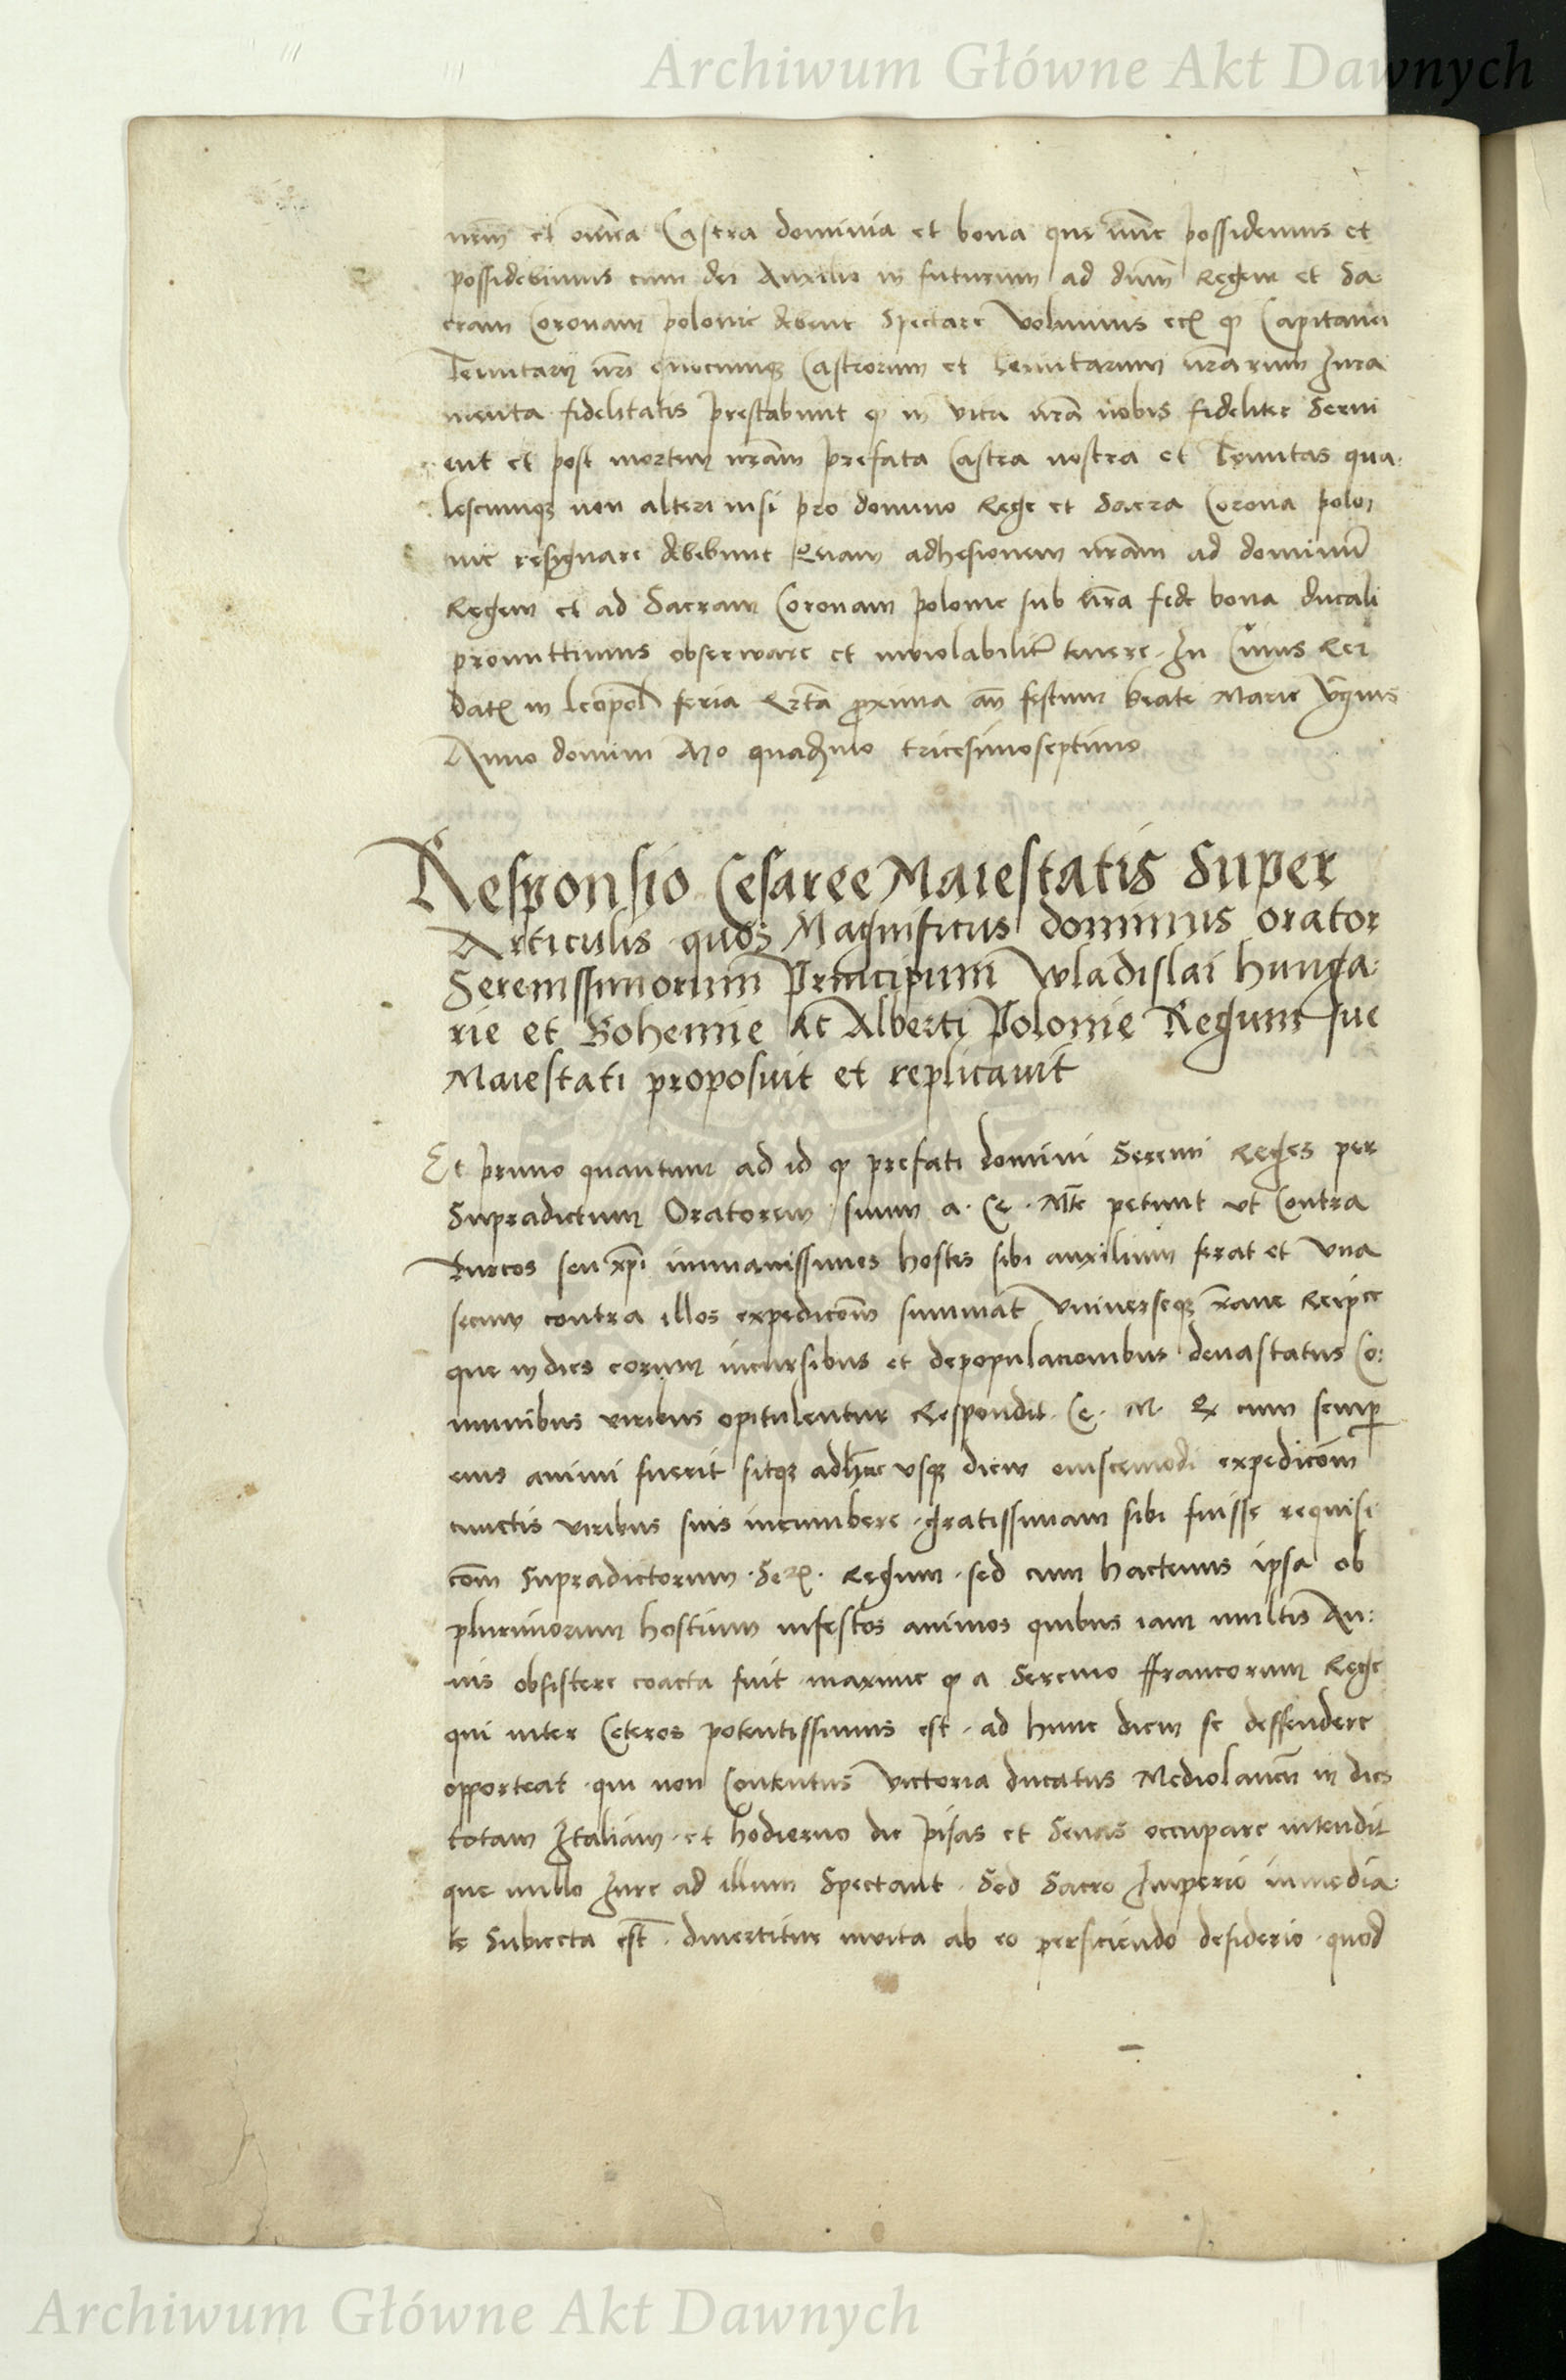 Archiwum Główne Akt Dawnych
nem̄ et om̄ia Castra dominia et bona que nūc possidemus et
possidebimus cum dei Auxilio in futurum ad dnū̄m Regem et Sa-
cram Coronam polonie debent Spectare Volumus etc̄ ꝙ Capitanei
Tenutarij nr̄i quocumqꝫ Castrorum et tenutarum nr̄arum Jura
menta fidelitatis prestabunt ꝙ in vita nr̄a nobis fideliter Serui
ent et post mortem nr̄am prefata Castra nostra et Tenutas qua-
lescumqꝫ non alteri nisi pro domino Rege et Sacra Corona polo-
nie resignare debebunt Quam adhesionem nr̄am ad dominū
Regem et ad Sacram Coronam polonie sub nr̄a fide bona ducali
promittimus obserware et inviolabilitꝰ tenere. In Cuius Rei
Datū in leopol feria qr̄ta ꝓxima an̄ festum beate Marie V̄ginis
Anno domini Mo quadḡmo tricesimoseptimo
Responsio Cesaree Maiestatis Super
Articulis quos Magnificus dominus orator
Serenissimorum̄ Principum Wladislai hunga-
rie et Bohemie ac Alberti Polonie Regum sue
Maiestati proposuit et replicauit
Et primo quantum ad id ꝙ prefati domini Sereni Reges per
Supradictum Oratorem suum a. Ce. Mt̄e petunt vt Contra
turcos seu xp̄i immanissimos hostes sibi auxilium ferat et Vna
secum contra illos expedicōm summat Vniuerseqꝫ x̄ane Reip̄ce
que indies eorum incursibus et depopulacionibus deuastatus Co-
munibus viribus opitulentur Respondit. Ce. M. ꝙ cum semꝑ
eius animi fuerit sitqꝫ adhūc vsqꝫ diem eiuscemodi expedicōm
cunctis viribus suis incumbere. gratissimam sibi fuisse requisi
cōm Supradictorum. Ser̄. Regum. sed cum hactenus ipsa ob
plurimorum hostium infestos animos quibus iam multis An-
nis obsistere coacta fuit maxime ꝙ a Sereno ffrancorum Rege
qui inter Ceteros potentissimus est. ad hunc diem se deffendere
opporteat. qui non Contentus Victoria ducatus Mediolaneñ in dies
totam Italiam. et hodierno die pisas et Senas occupare intendit
que nullo Jure ad illum Spectant. Sed Sacro Imperio inmedia-
te Subiecta est̄. diuertitur inuita ab eo perficiendo desiderio. quod
Archiwum Główne Akt Dawnych